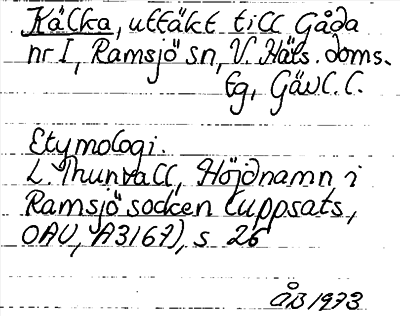 Källka, uttäkt till Gåda
nr I, Ramsjö sn, V. Häls. doms.
tg, Gävl. l.
Etymologi.
L. Thunvall, Höjdnamn i
Ramsjö socken (uppsats,
OAU, A3167), s. 26
ÅB 1973